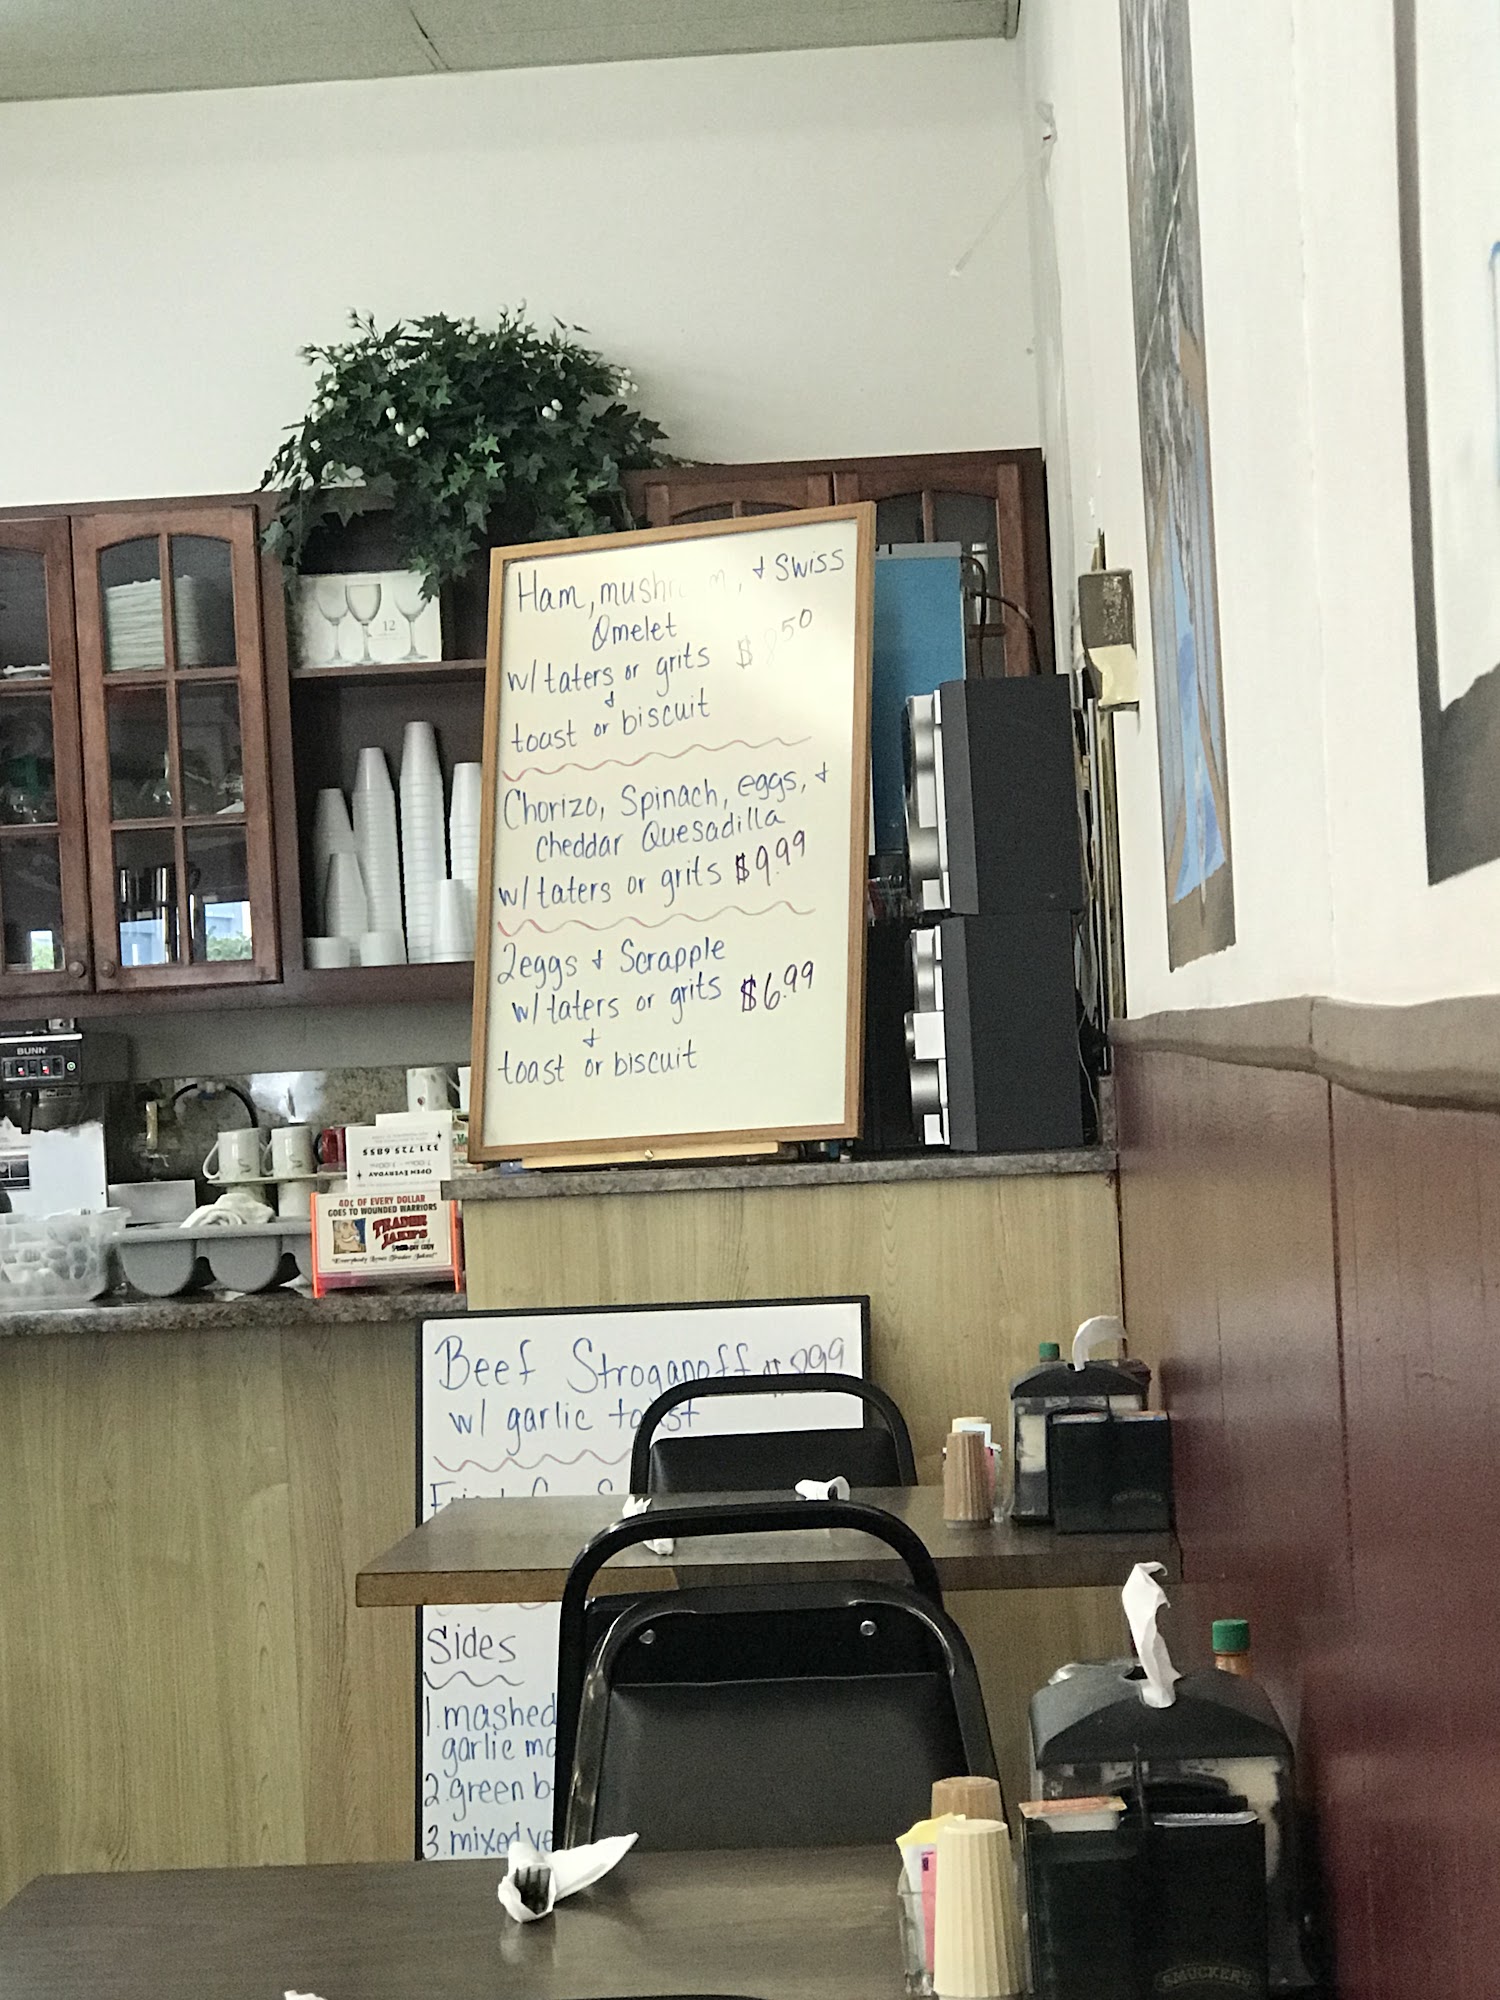 Ham, mushroom, + Swiss
Omelet
w/ taters or grits $8.50
+
toast or biscuit
Chorizo, Spinach, eggs, +
Cheddar Quesadilla
w/ taters or grits $9.99
2 eggs + Scrapple
w/ taters or grits $6.99
+
toast or biscuit
BUNN
12
321.725.6855
OPEN EVERYDAY
40¢ OF EVERY DOLLAR
GOES TO WOUNDED WARRIORS
TRADER
JAKE'S
per copy
"Everybody Loves Trader Jakes!"
Beef Stroganoff
w/ garlic toast
Sides
1. mashed
garlic
2. green
3. mixed
SMUCKER'S